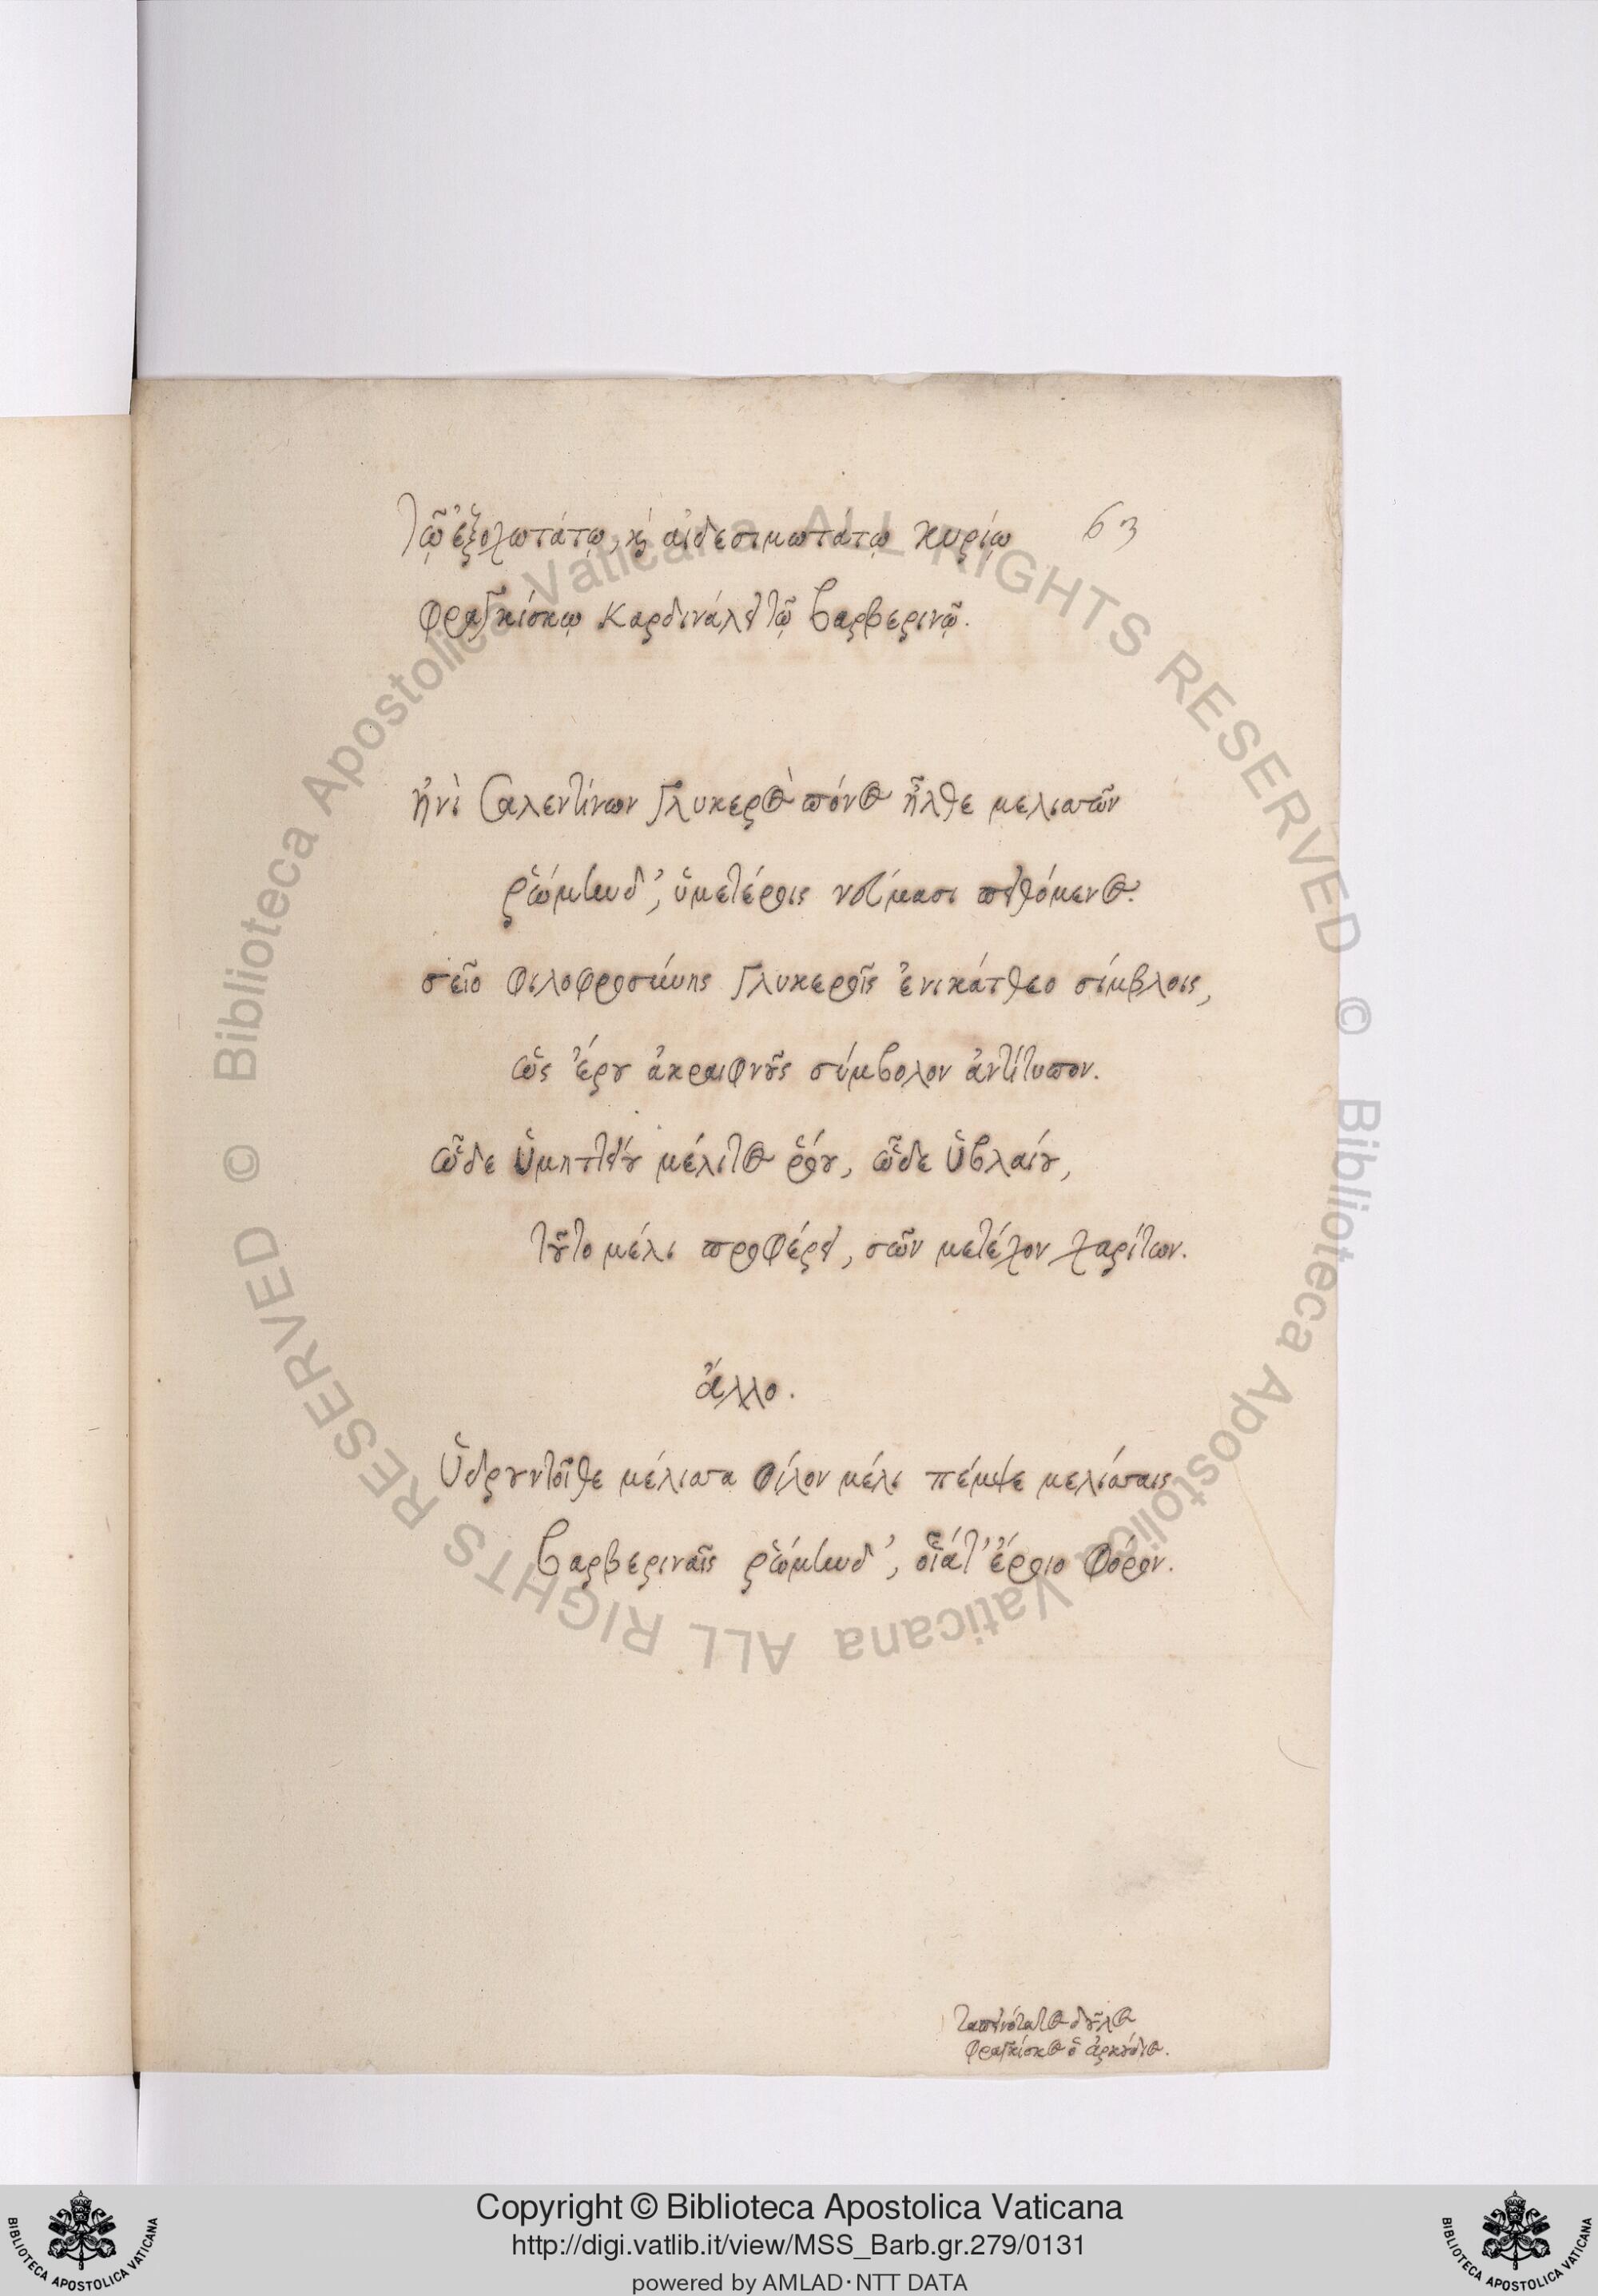 τῷ ἐξοχωτάτῳ, καὶ αἰδεσιμωτάτῳ κυρίῳ
63
Φραγκίσκῳ Καρδινάλει τῷ βαρβερινῷ.
ἠνὶ Σαλεντίνων γλυκερὸς πόνος ἦλθε μελισσῶν
ῥώμηνδ', ὑμετέροις νεύμασι πειθόμενος.
σεῖο φιλοφροσύνης γλυκεροῖς ἐνικάτθεο σίμβλοις,
ὡς ἔρου ἀκραιφνοῦς σύμβολον ἀντίτυπον.
ὧδε ὑμηττείου μέλιτος ῥόου, ὧδε ὑβλαίου,
τοῦτο μέλι προφέρει, σῶν μετέχον χαρίτων.
ἄλλο.
Ὑδρουντοῖθε μέλισσα φίλον μέλι πέμψε μελίσσαις
βαρβεριναῖς ῥώμηνδ', οἷάτ' ἔροιο φόρον.
ταπεινότατος δοῦλος
Φραγκίσκος ὁ ἀρκούδιος.
Copyright © Biblioteca Apostolica Vaticana
http://digi.vatlib.it/view/MSS_Barb.gr.279/0131
powered by AMLAD·NTT DATA
BIBLIOTECA APOSTOLICA VATICANA
BIBLIOTECA APOSTOLICA VATICANA
© Biblioteca Apostolica Vaticana ALL RIGHTS RESERVED
© Biblioteca Apostolica Vaticana ALL RIGHTS RESERVED